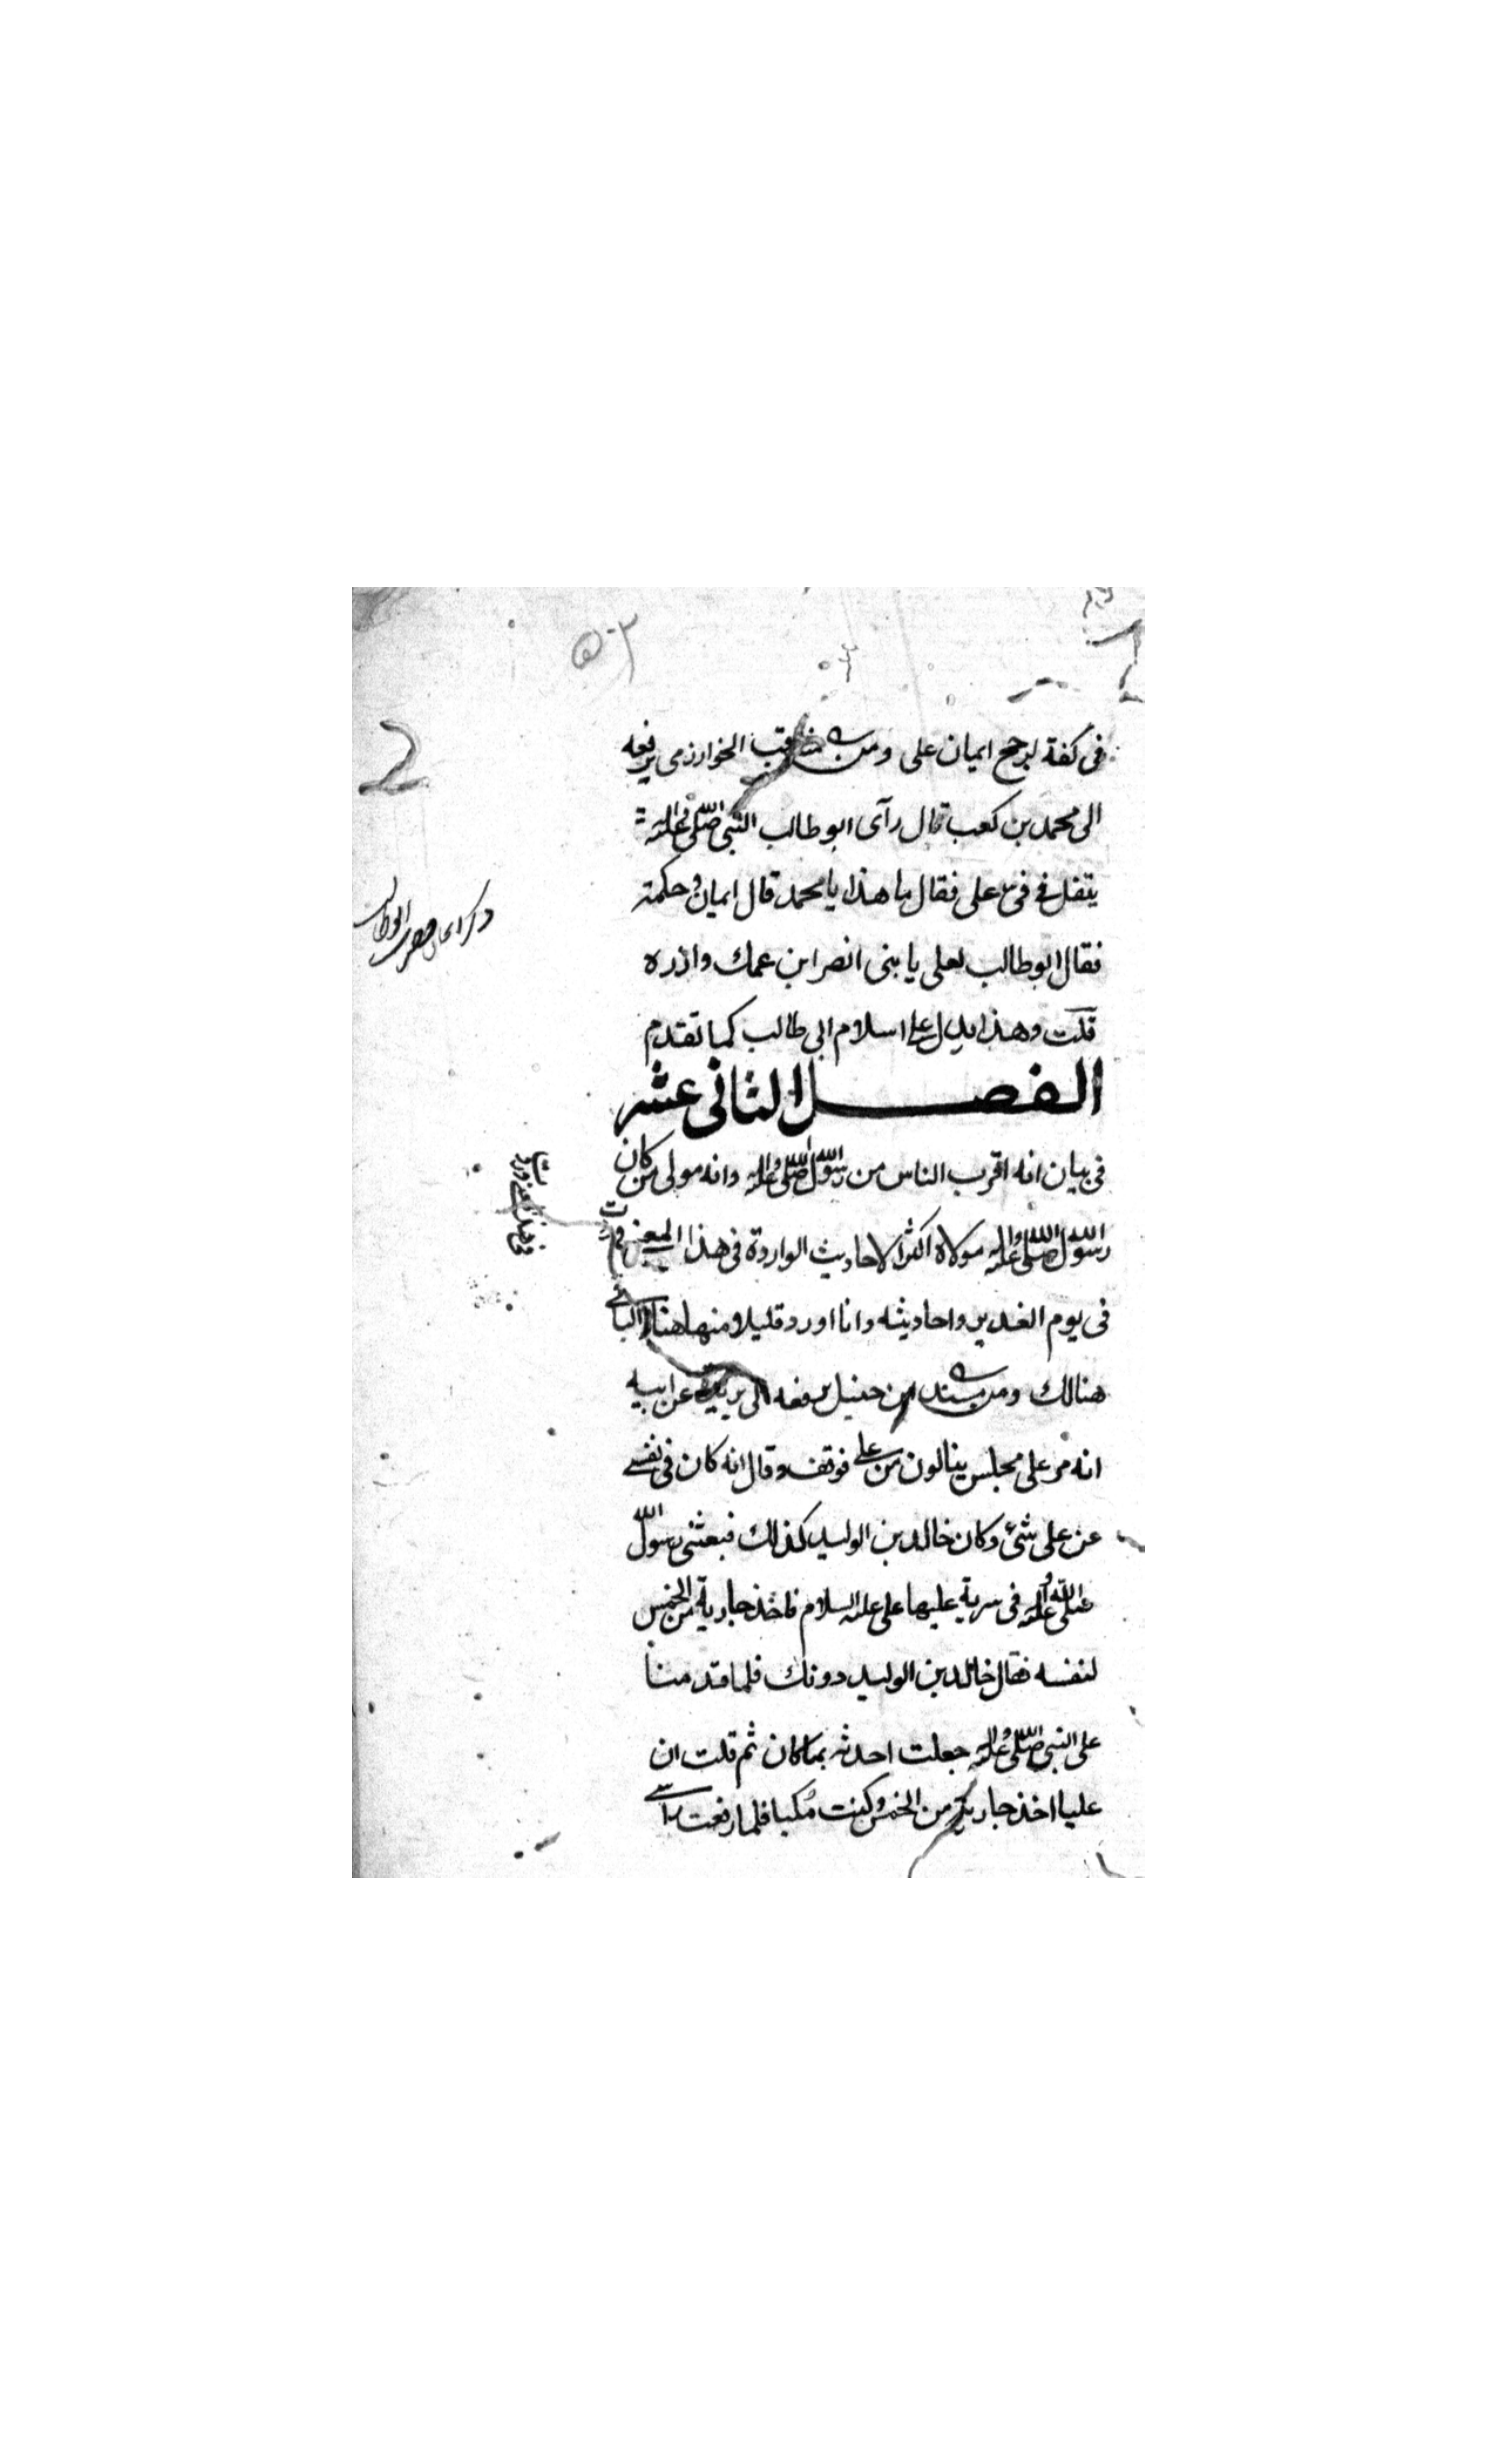 في كفة لرجح ايمان على ومن مناقب الخوارزمى يرفعه
الى محمد بن كعب قال رآى ابو طالب النبي صلى الله عليه واله
يتفل في في على فقال ما هذا يا محمد قال ايمان وحكمة
فقال ابو طالب لعلى يا بنى انصر ابن عمك وازره
قلت وهذا يدل على اسلام ابى طالب كما تقدم
الفصل الثانى عشر
فى بيان انه اقرب الناس من رسول الله صلى الله عليه واله وانه مولى من كان
رسول الله صلى الله عليه واله مولاه اكثر الاحاديث الواردة فى هذا المعنى
فى يوم الغدير واحاديثه وانا اورد قليلا منها هنا والباقي
هنالك ومن مسند ابن حنبل يرفعه الى بريدة عن ابيه
انه مر على مجلس ينالون من على فوقف وقال انه كان فى نفسي
عن على شئ وكان خالد بن الوليد كذلك فبعثنى رسول الله
صلى الله عليه واله فى سرية عليها على عليه السلام فاخذ جارية من الخمس
لنفسه فقال خالد بن الوليد دونك فلما قدمنا
على النبى صلى الله عليه واله جعلت احدثه بما كان ثم قلت ان
عليا اخذ جارية من الخمس وكنت مكبا فلما رفعت راسي